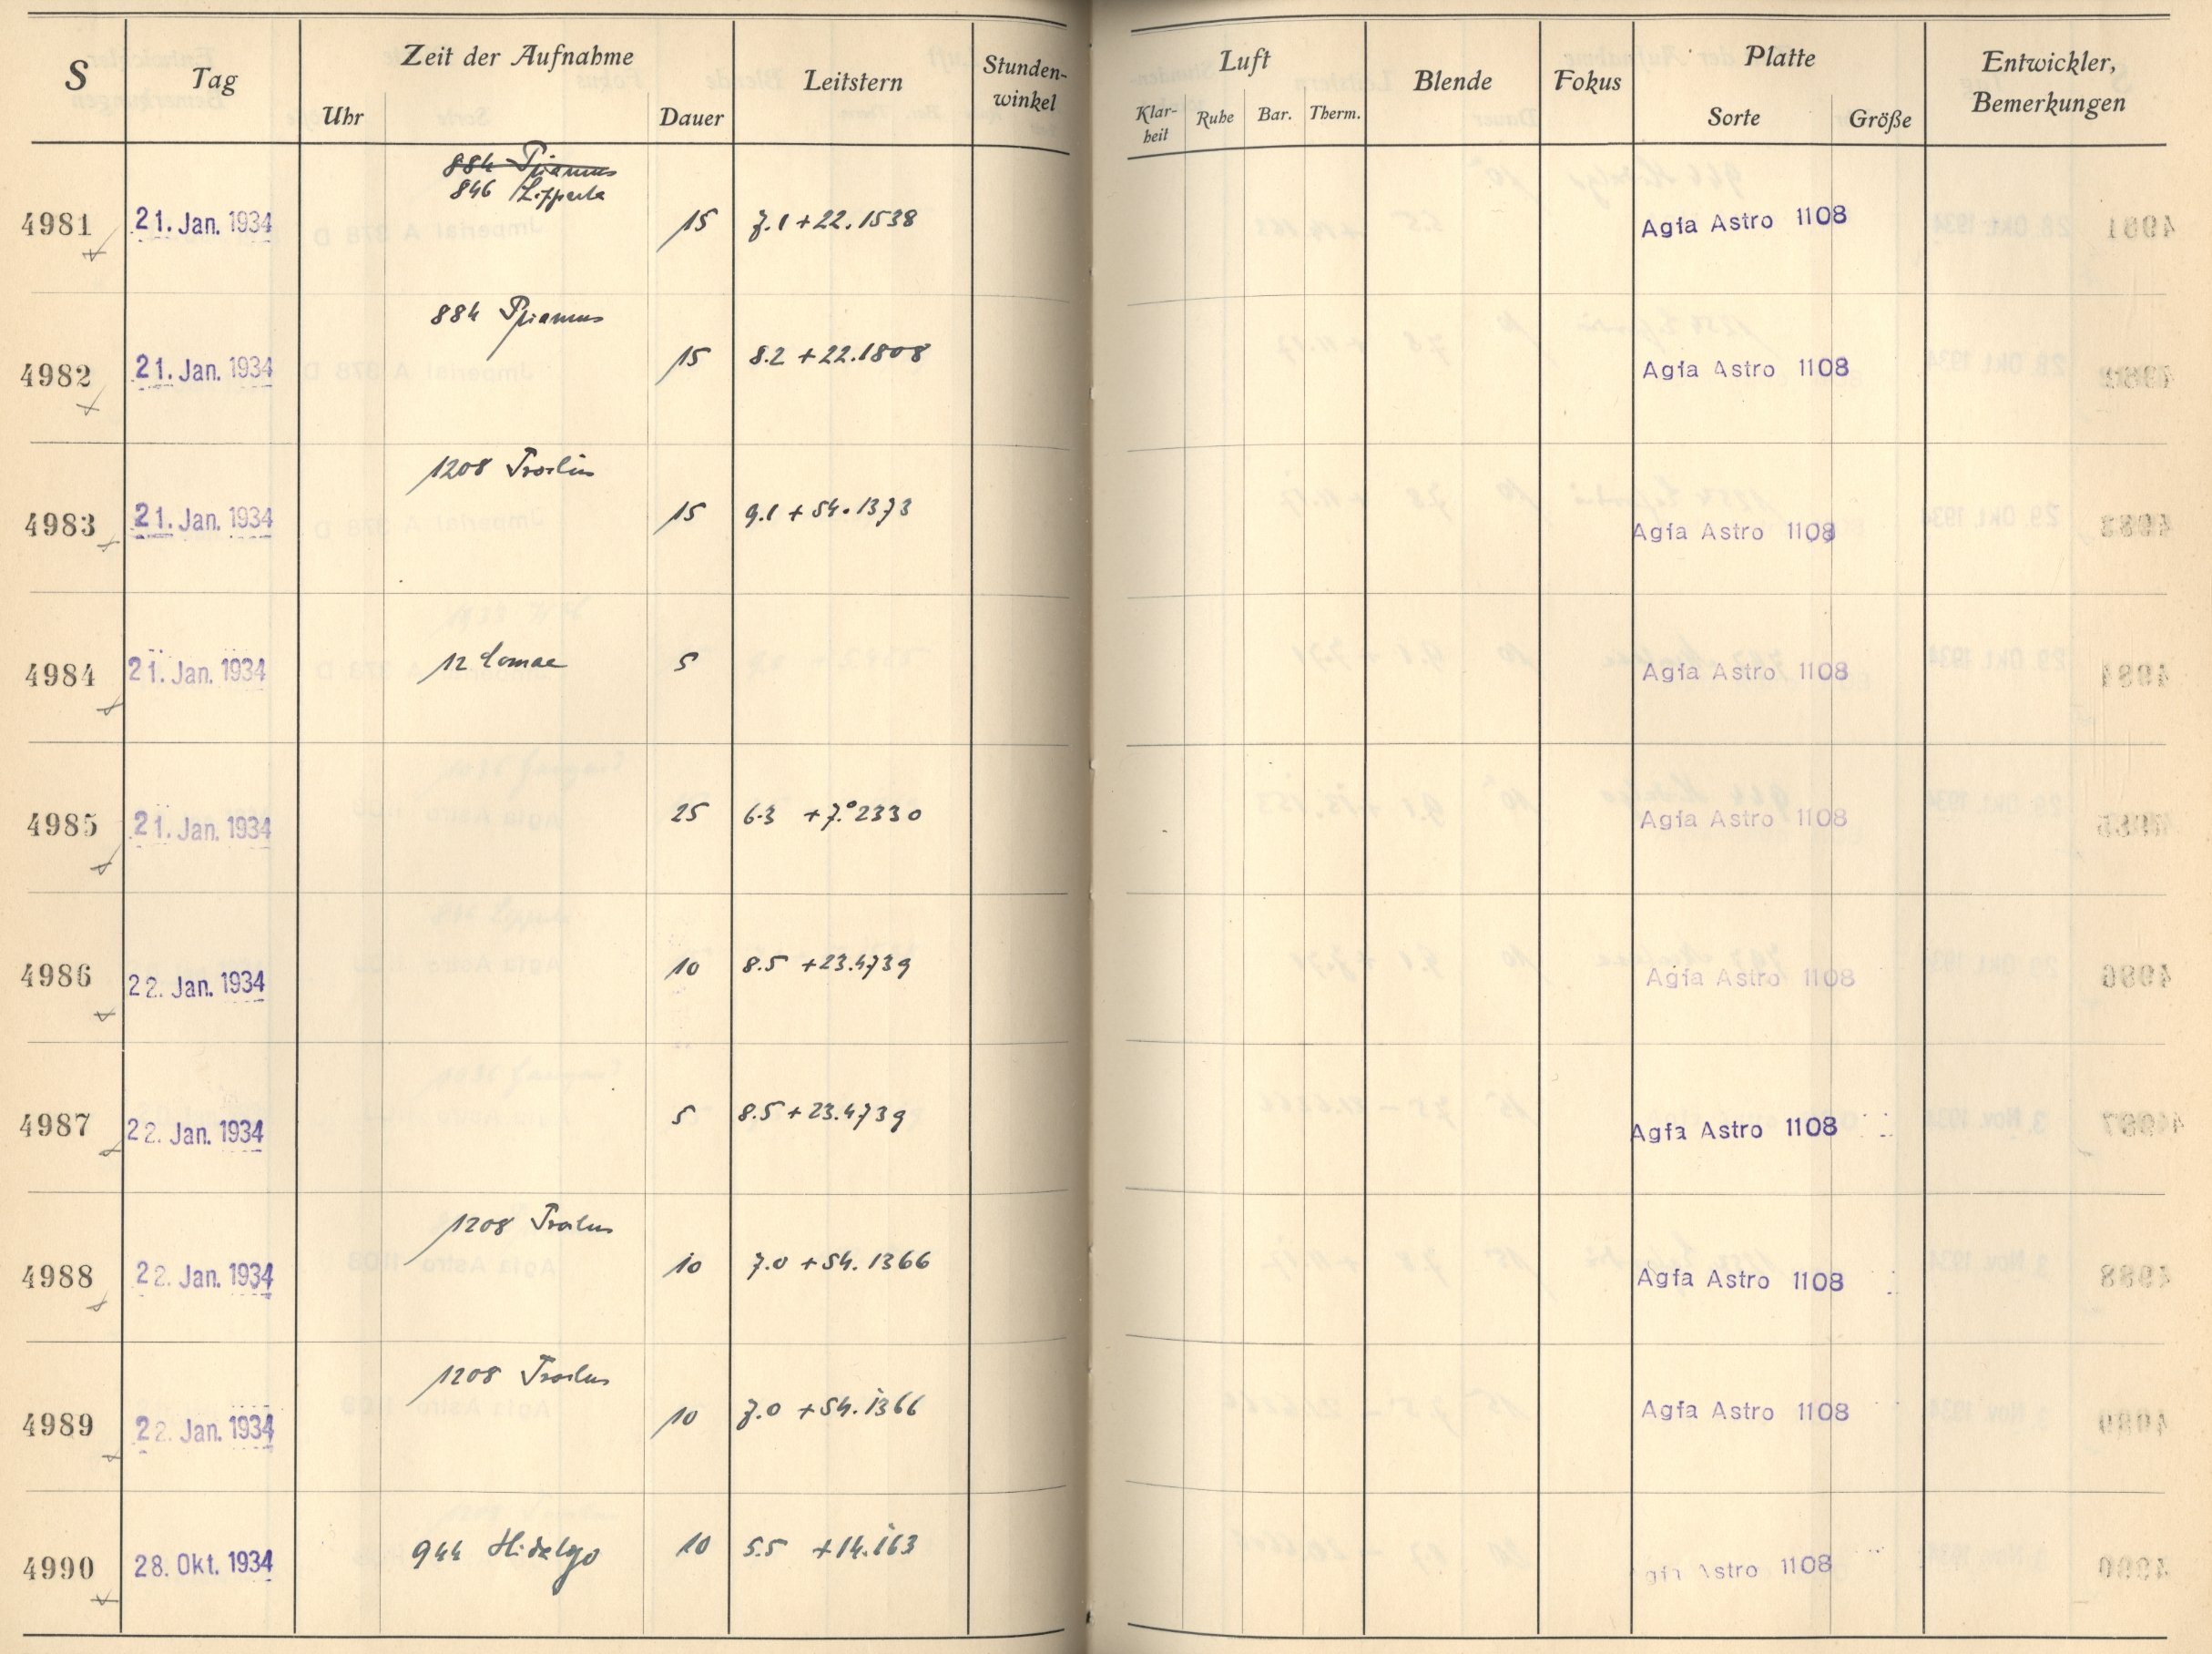 S Tag Zeit der Aufnahme Leitstern Stunden-winkel Luft Blende Fokus Platte Entwickler, Bemerkungen
Uhr Dauer Klar-heit Ruhe Bar. Therm. Sorte Größe
884 Priamus
846 Lipperta
4981 21. Jan. 1934 15 7.1 +22.1538 Agfa Astro 1108
884 Priamus
4982 21. Jan. 1934 15 8.2 +22.1808 Agfa Astro 1108
1208 Troilus
4983 21. Jan. 1934 15 9.1 +54.1373 Agfa Astro 1108
4984 21. Jan. 1934 12 Comae 5 Agfa Astro 1108
4985 21. Jan. 1934 25 6.3 +7.°2330 Agfa Astro 1108
4986 22. Jan. 1934 10 8.5 +23.4739 Agfa Astro 1108
4987 22. Jan. 1934 5 8.5 +23.4739 Agfa Astro 1108
1208 Troilus
4988 22. Jan. 1934 10 7.0 +54.1366 Agfa Astro 1108
1208 Troilus
4989 22. Jan. 1934 10 7.0 +54.1366 Agfa Astro 1108
4990 28. Okt. 1934 944 Hidalgo 10 5.5 +14.163 gfa Astro 1108